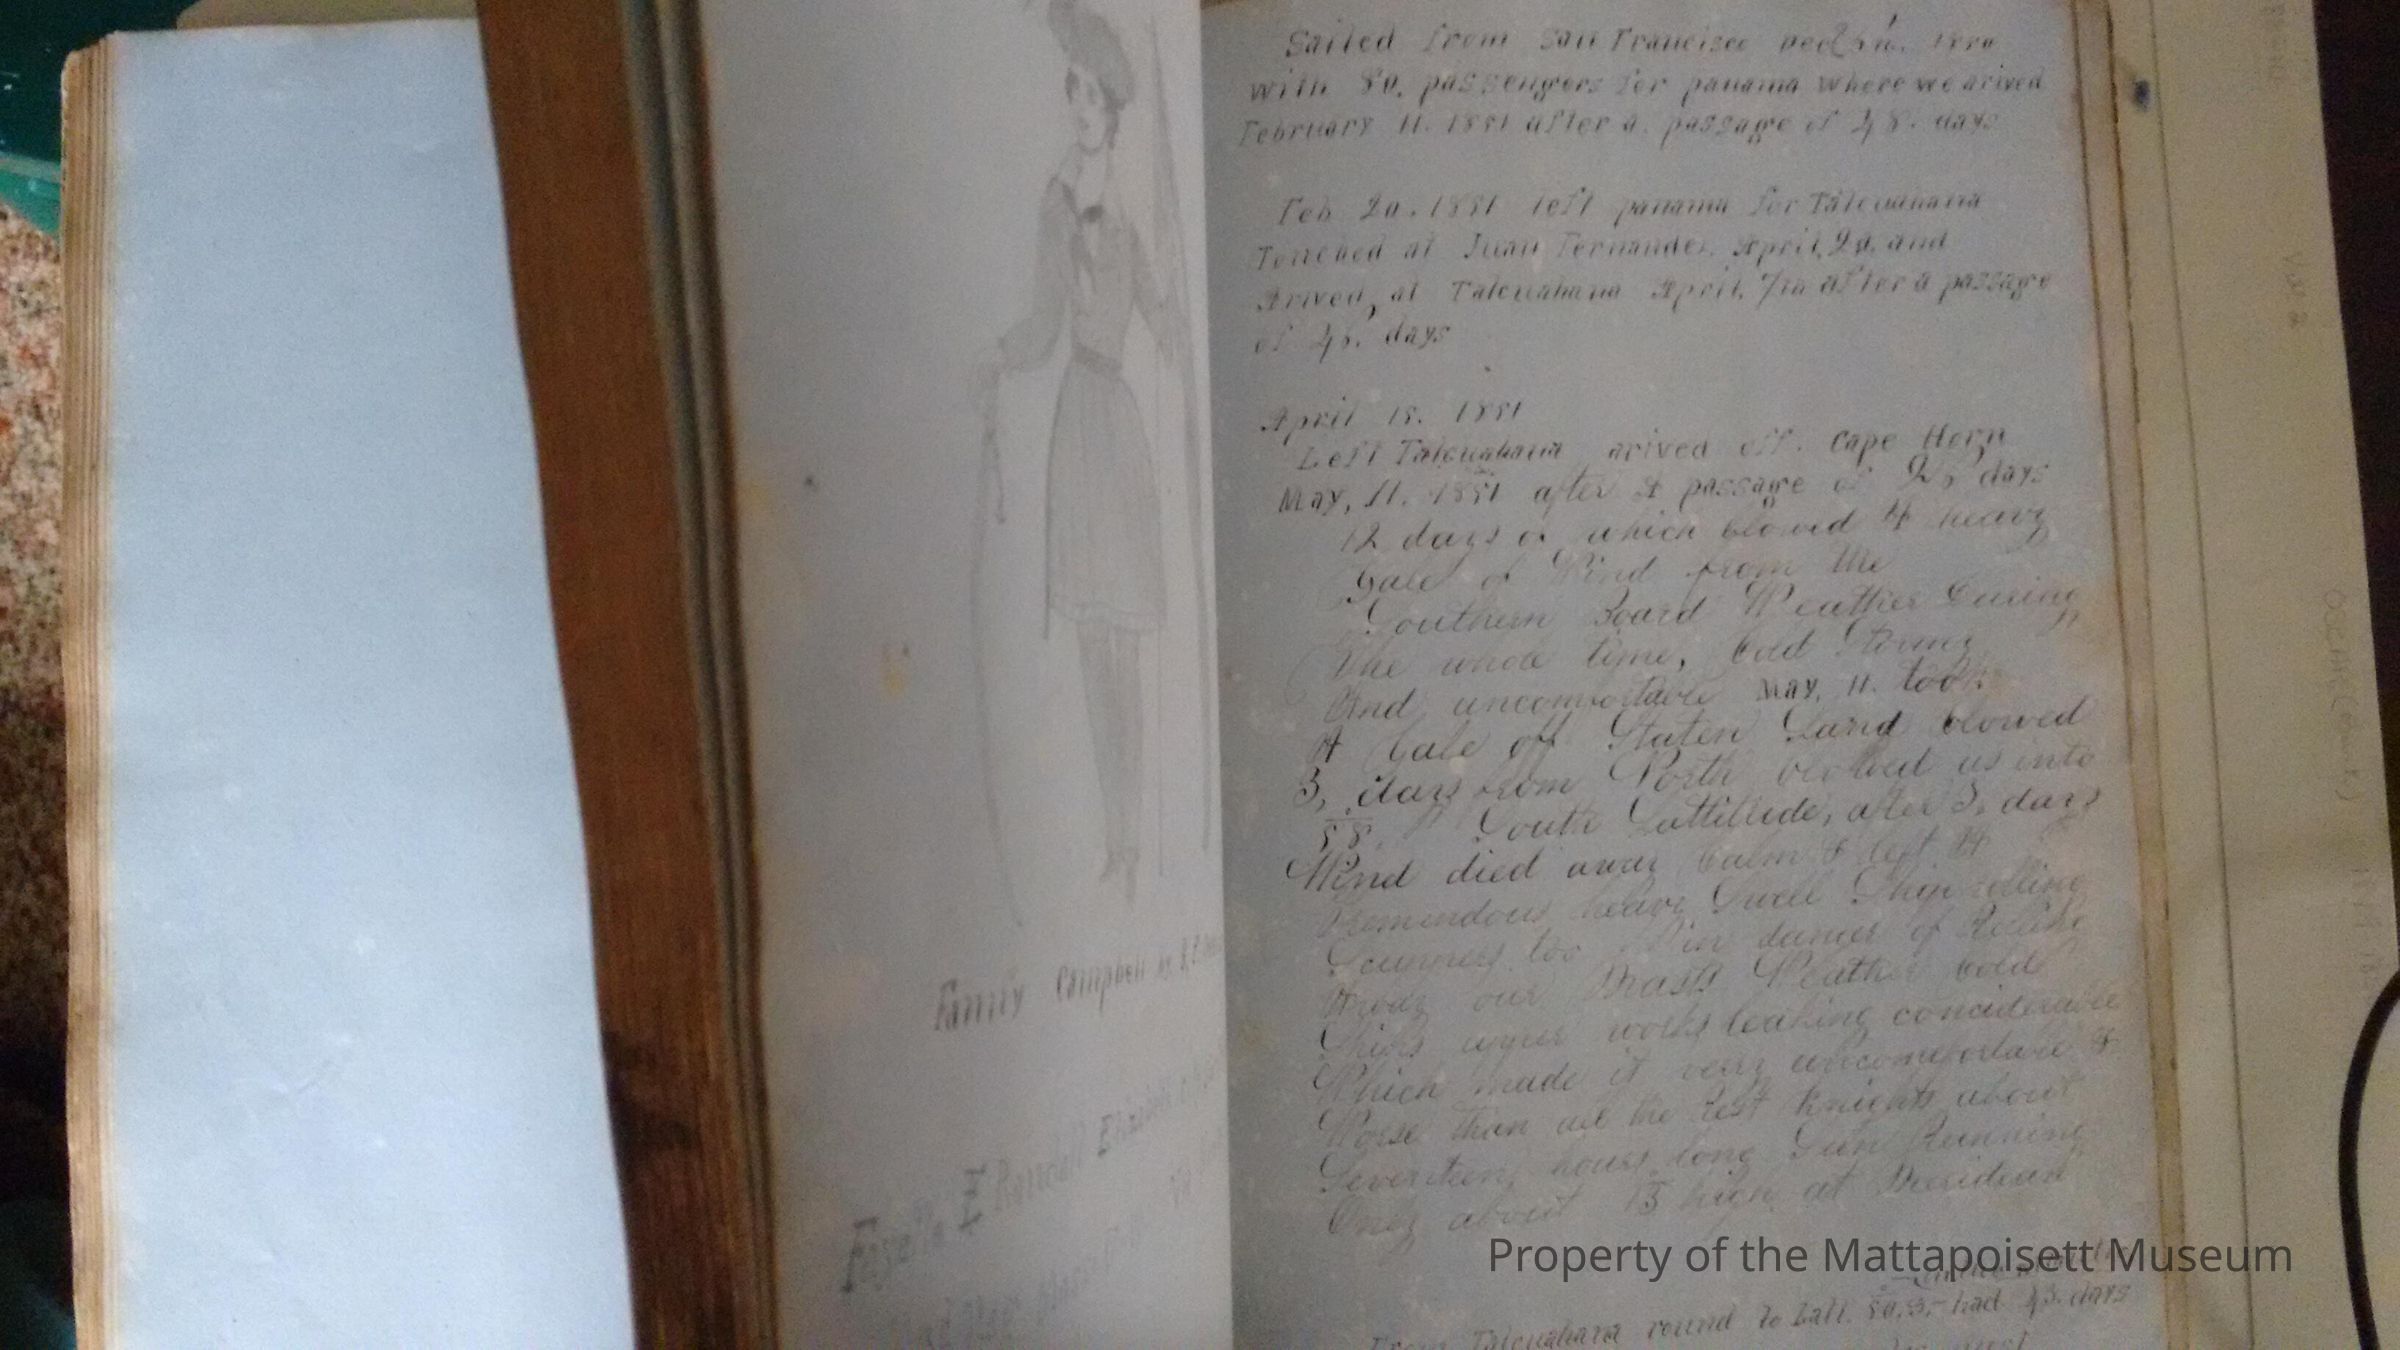 Fanny Campbell by
E Randall Elizabeth
Sailed from San Francisco Dec 25th. 1850
with 80. passengers for panama where we arived
February 11. 1851 after a. passage of 48. days
Feb 20. 1851 left panama for Talcuahana
Touched at Juan Fernandes. April, 2d. and
Arived, at Talcuahana April, 7th after a passage
of 45. days
April 15. 1851
Left Talcuahana arived off. Cape Horn
May, 11. 1851 after A passage of 25 days
12 days of which blowed A heavy
Gale of Wind from the
Southern Board Weather During
The whole time, Cold Stormy
And uncomfortable May. 11. took
A Gale off Staten Land blowed
3, days from North blowed us into
58. South Lattitude, after 3, days
Wind died away Calm & left A
Tremendous heavy Swell Ship rolling
Scuppers too in danger of Rolling
Away our Masts Weather cold
Ships upper works leaking considerable
Which made it very uncomfortable &
Worse than all the rest Knights about
Seventeen, hours long Sun Running
Only about 15 high at Meridian
From Talcuahana round to Latt. 50.S. had 43. days
Property of the Mattapoisett Museum